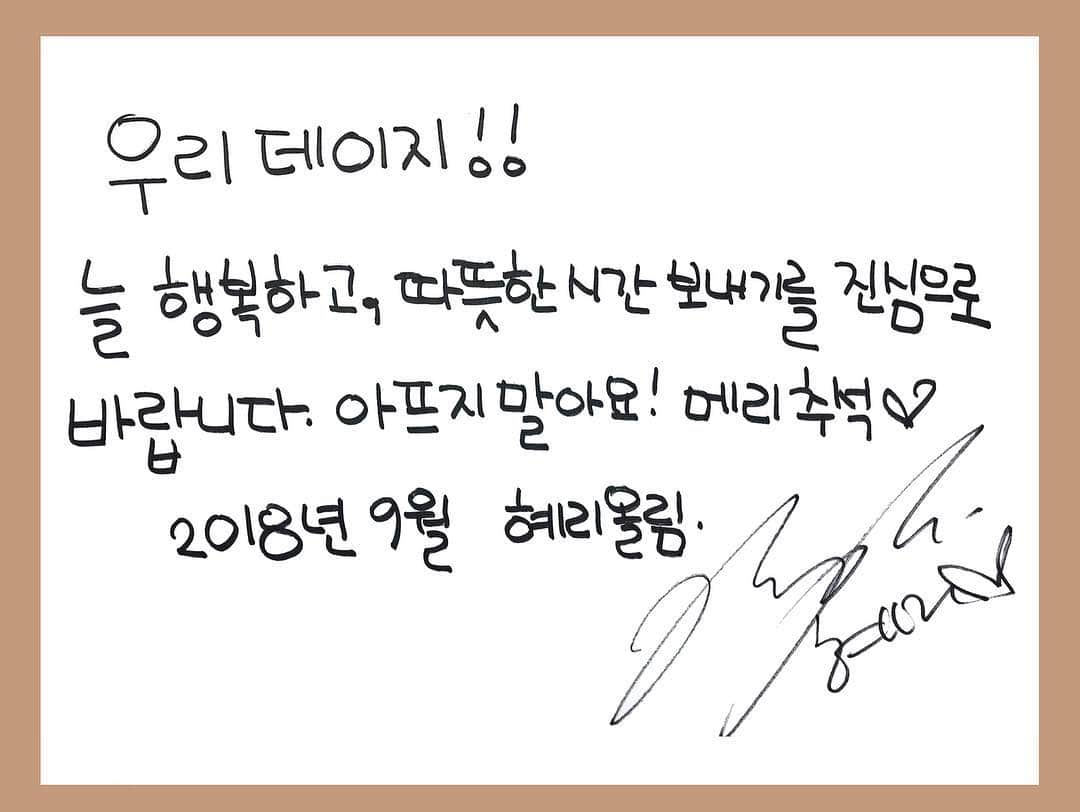 우리 데이지!!
늘 행복하고, 따뜻한 시간 보내기를 진심으로
바랍니다. 아프지 말아요! 메리 추석♡
2018년 9월 혜리올림.